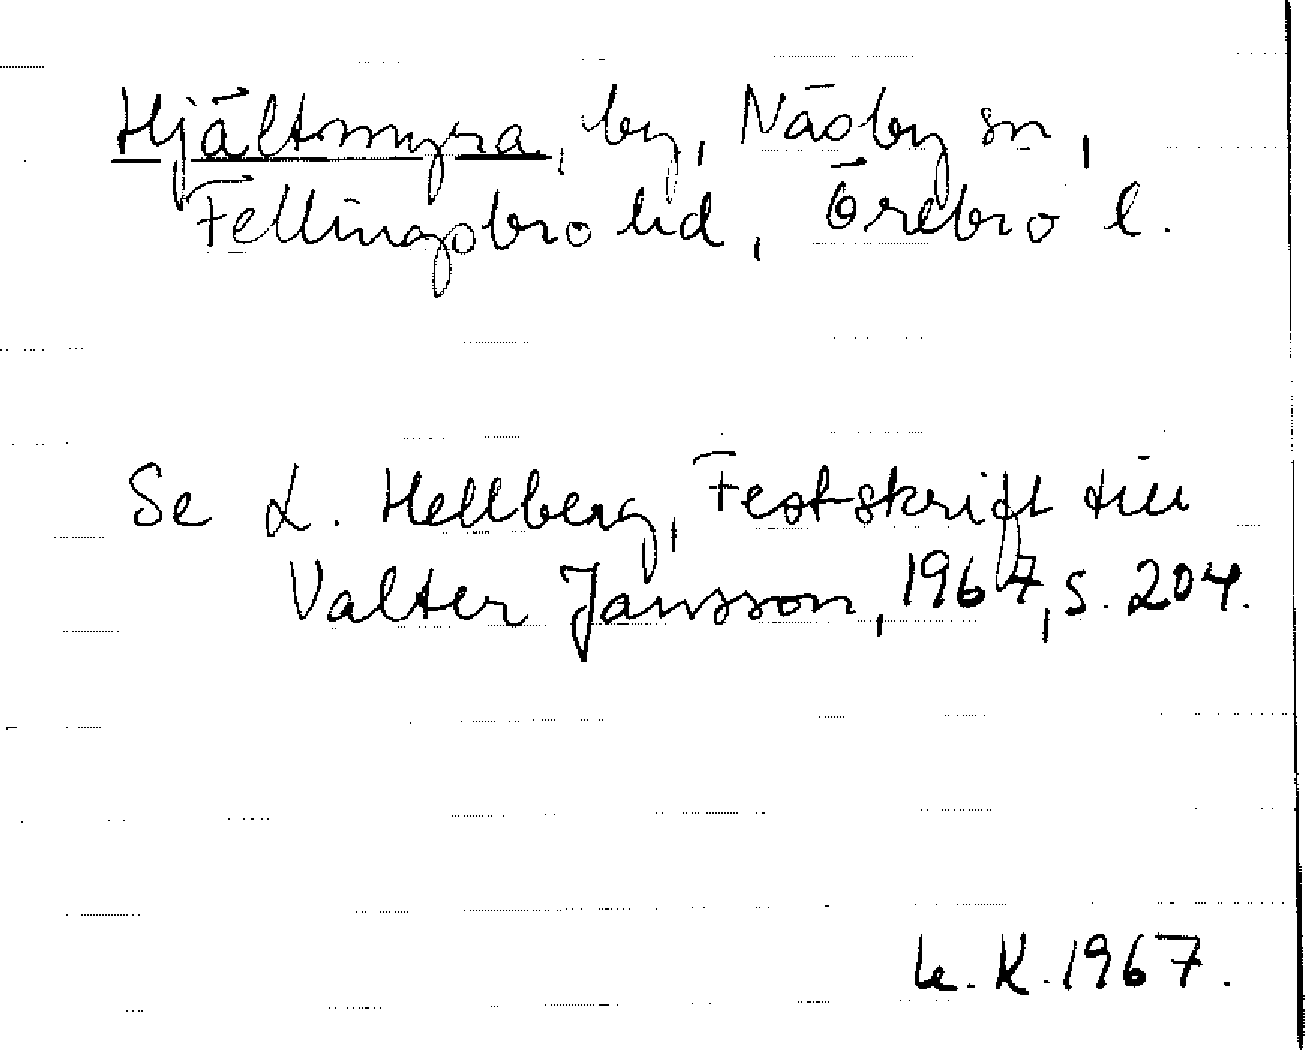 Hjältmyra, by, Näsby sn,
Fellingsbro hd, Örebro l.
Se L. Hellberg, Festskrift till
Valter Jansson, 1967, s. 204.
K. 1967.